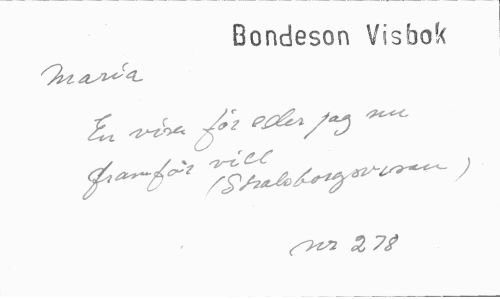 Bondeson Visbok
Maria
En visa för eder jag nu
framför vill
(Skalsborgsvisan)
nr 278